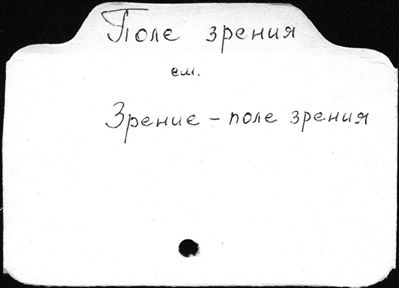 Поле зрения
см.
Зрение - поле зрения